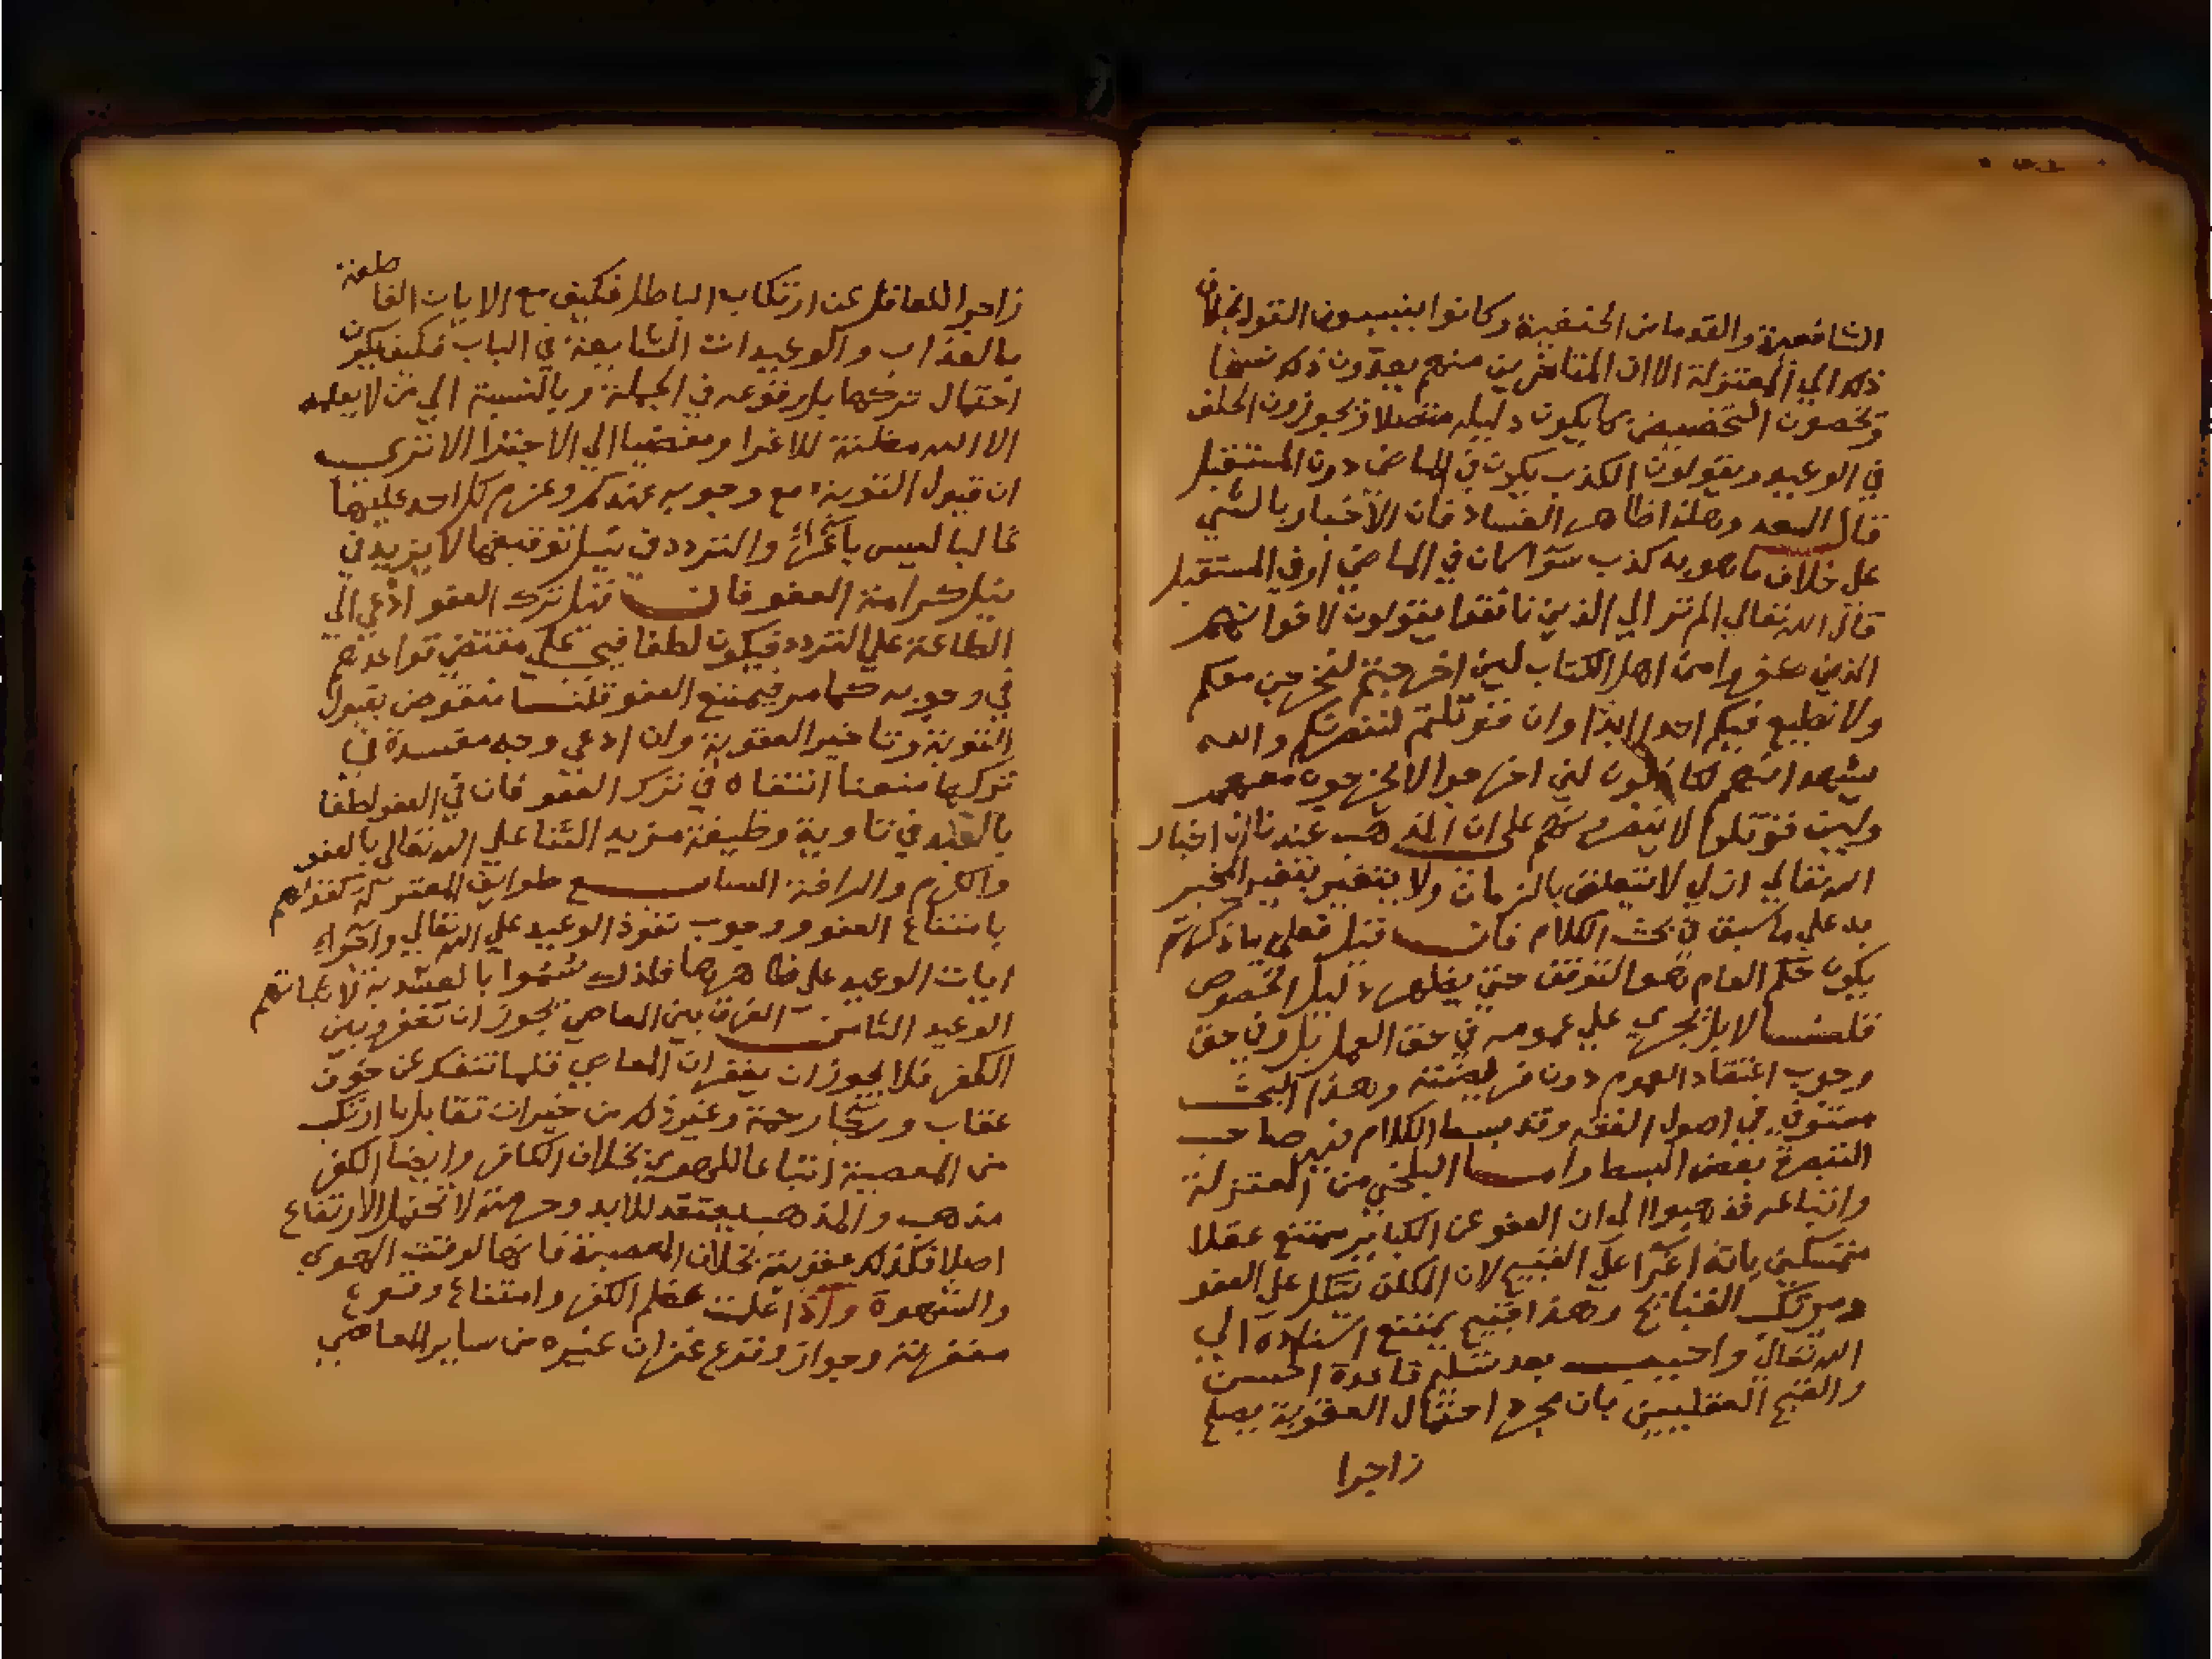 الشافعية والقدما من الحنفية وكانوا ينسبون القول بخلاف
ذلك الي المعتزلة الا ان المتاخرين منهم يعدون ذلك نسخا
ويخصون التخصيص بما يكون دليله متصلا ويجوزون الخلف
في الوعيد ويقولون الكذب يكون في الماضي دون المستقبل
قال السعد وهذا ظاهر الفساد فان الاخبار بالشي
على خلاف ما هو به كذب سوا كان في الماضي او في المستقبل
قال الله تعالي الم تر الي الذين نافقوا يقولون لاخوانهم
الذين كفروا من اهل الكتاب لين اخرجتم لنخرجن معكم
ولا نطيع فيكم احدا ابدا وان قوتلتم لننصرنكم والله
يشهد انهم لكاذبون لين اخرجوا لا يخرجون معهم
ولين قوتلوا لا ينصرونهم على ان المذهب عندنا ان اخبار
الله تعالي ازلي لا يتعلق بالزمان ولا يتغير بتغير المخبر
به علي ما سبق في بحث الكلام فان قيل فعلي ما ذكرتم
يكون حكم العام هو التوقف حتي يظهر دليل الخصوص
قلنا لا بل يجري علي عمومه في حق العمل بل وفي حق
وجوب اعتقاد العموم دون فرضيته وهذا البحث
مستوفي في اصول الفقه وقد بسط الكلام فيه صاحب
التبصرة بعض البسط واما البلخي من المعتزلة
واتباعه فذهبوا الي ان العفو عن الكباير ممتنع عقلا
متمسكين بانه اغرا علي القبيح لان المكلف يتكل علي العفو
ويرتكب القبائح وهذا قبيح يمتنع اسناده الي
الله تعالي واجيب بعد تسليم قاعدة الحسن
والقبح العقليين بان مجرد احتمال العقوبة يصلح
زاجرا
زاجرا للعاقل عن ارتكاب الباطل فكيف مع الايات القاطعة
بالعذاب والوعيدات الشايعة في الباب فكيف يكون
احتمال تركها بل وقوعه في الجملة وبالنسبة الي من لا يعلمه
الا الله مظنة للاغرا ومفضيا الي الاجترا الا تري
ان قبول التوبة مع وجوبه عندكم وعزم كل احد عليها
غالبا ليس باغراء والتردد في نيل توفيقها لا يزيد في
نيل كرامة العفو فان قيل ترك العفو ادعي الي
الطاعة علي التردد فيكون لطفا فيجب علي مقتضي قواعدهم
في وجوبه كما مر فيمتنع العفو قلنا منقوض بقبول
التوبة وتاخير العقوبة وان ادعي وجه مفسدة في
تركها منعنا انتفاه في ترك العفو فان في العفو لطفا
بالعبد في تاوية وظيفة مزيد الثنا علي الله تعالي بالعفو
والكرم والرافة السابع طوايف المعتزلة كفولهم
بامتناع العفو ووجوب نفوذ الوعيد علي الله تعالي واجراء
ايات الوعيد على ظاهرها فلذلك سموا بالوعيدية لايجابهم
الوعيد الثامن الفرق بين العاصي يجوز ان تغفر وبين
الكفر فلا يجوز ان يغفر ان العاصي قلما تنفك عن خوف
عقاب ورجا رحمة وغير ذلك من خيرات تقابل ما ارتكب
من المعصية اتباعا للهوي بخلاف الكافر وايضا الكفر
مذهب والمذهب يعتقد للابد وحرمته لا تحتمل الارتفاع
اصلا فكذلك عقوبته بخلاف المعصية فانها لوقت الهوي
والشهوة واذا علمت عظم الكفر وامتناع وقوع
مغفرته وجواز وقوع غفران غيره من ساير المعاصي